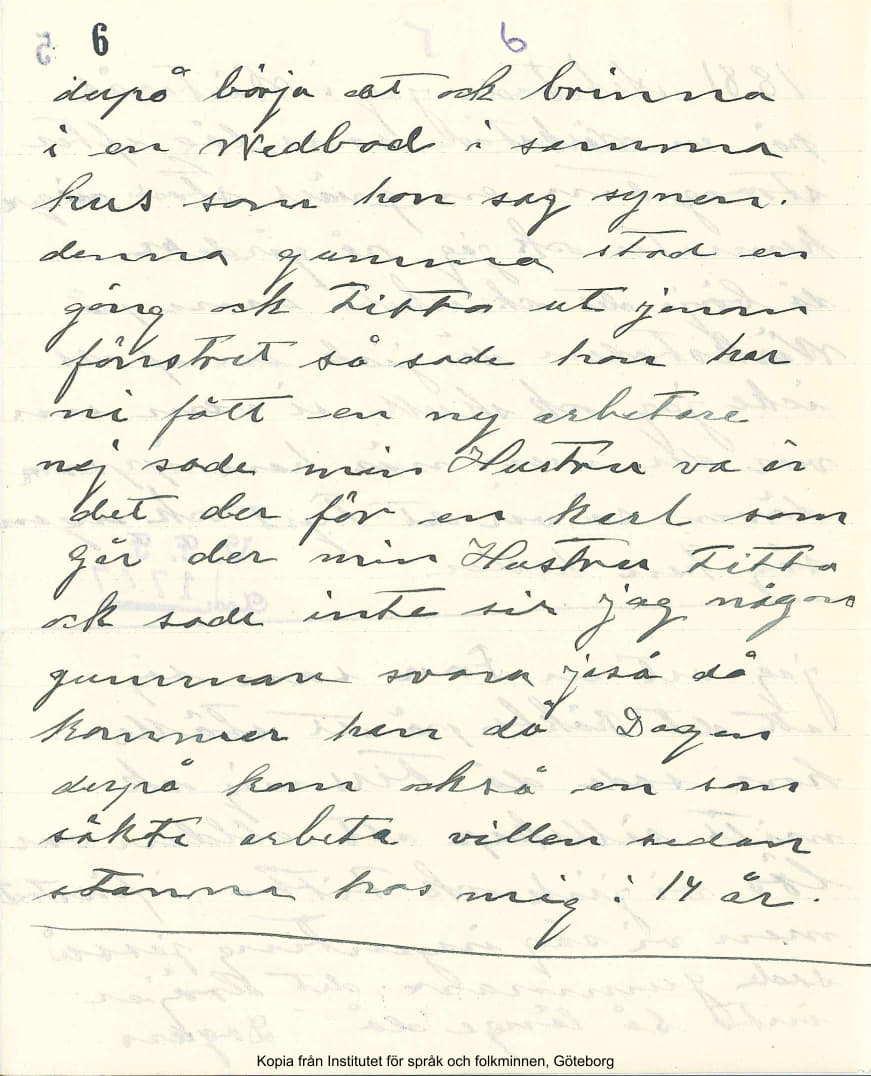 6 6
derpå börja at ock brinna
i en Wedbod i samma
hus som hon sag synen.
denna gumma stod en
gång ock titta ut jenom
fönstret så sade hon har
ni fått en ny arbetare
nej sade min Hustru va är
det der för en karl som
går der min Hustru titta
ock sade inte sir jag någon
gumman svara jaså då
kommer han då Dagen
derpå kom också en som
sökte arbeta villen sedan
stanna hos mig i 14 år.
Kopia från Institutet för språk och folkminnen, Göteborg